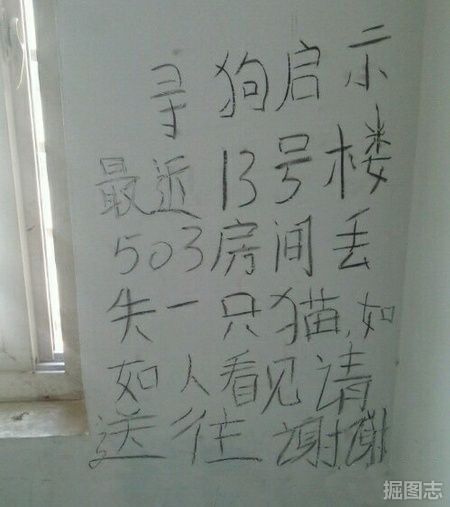 寻狗启示
最近13号楼
503房间丢
失一只猫,如
如人看见请
送往谢谢
掘图志